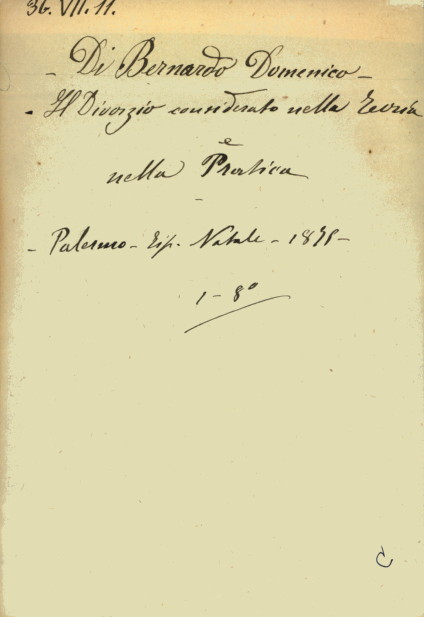 36. VII. 11.
- Di Bernardo Domenico -
- Il Divorzio considerato nella Teoria
e
nella Pratica
-
- Palermo - Tip. Natale - 1875 -
1 - 8°
C